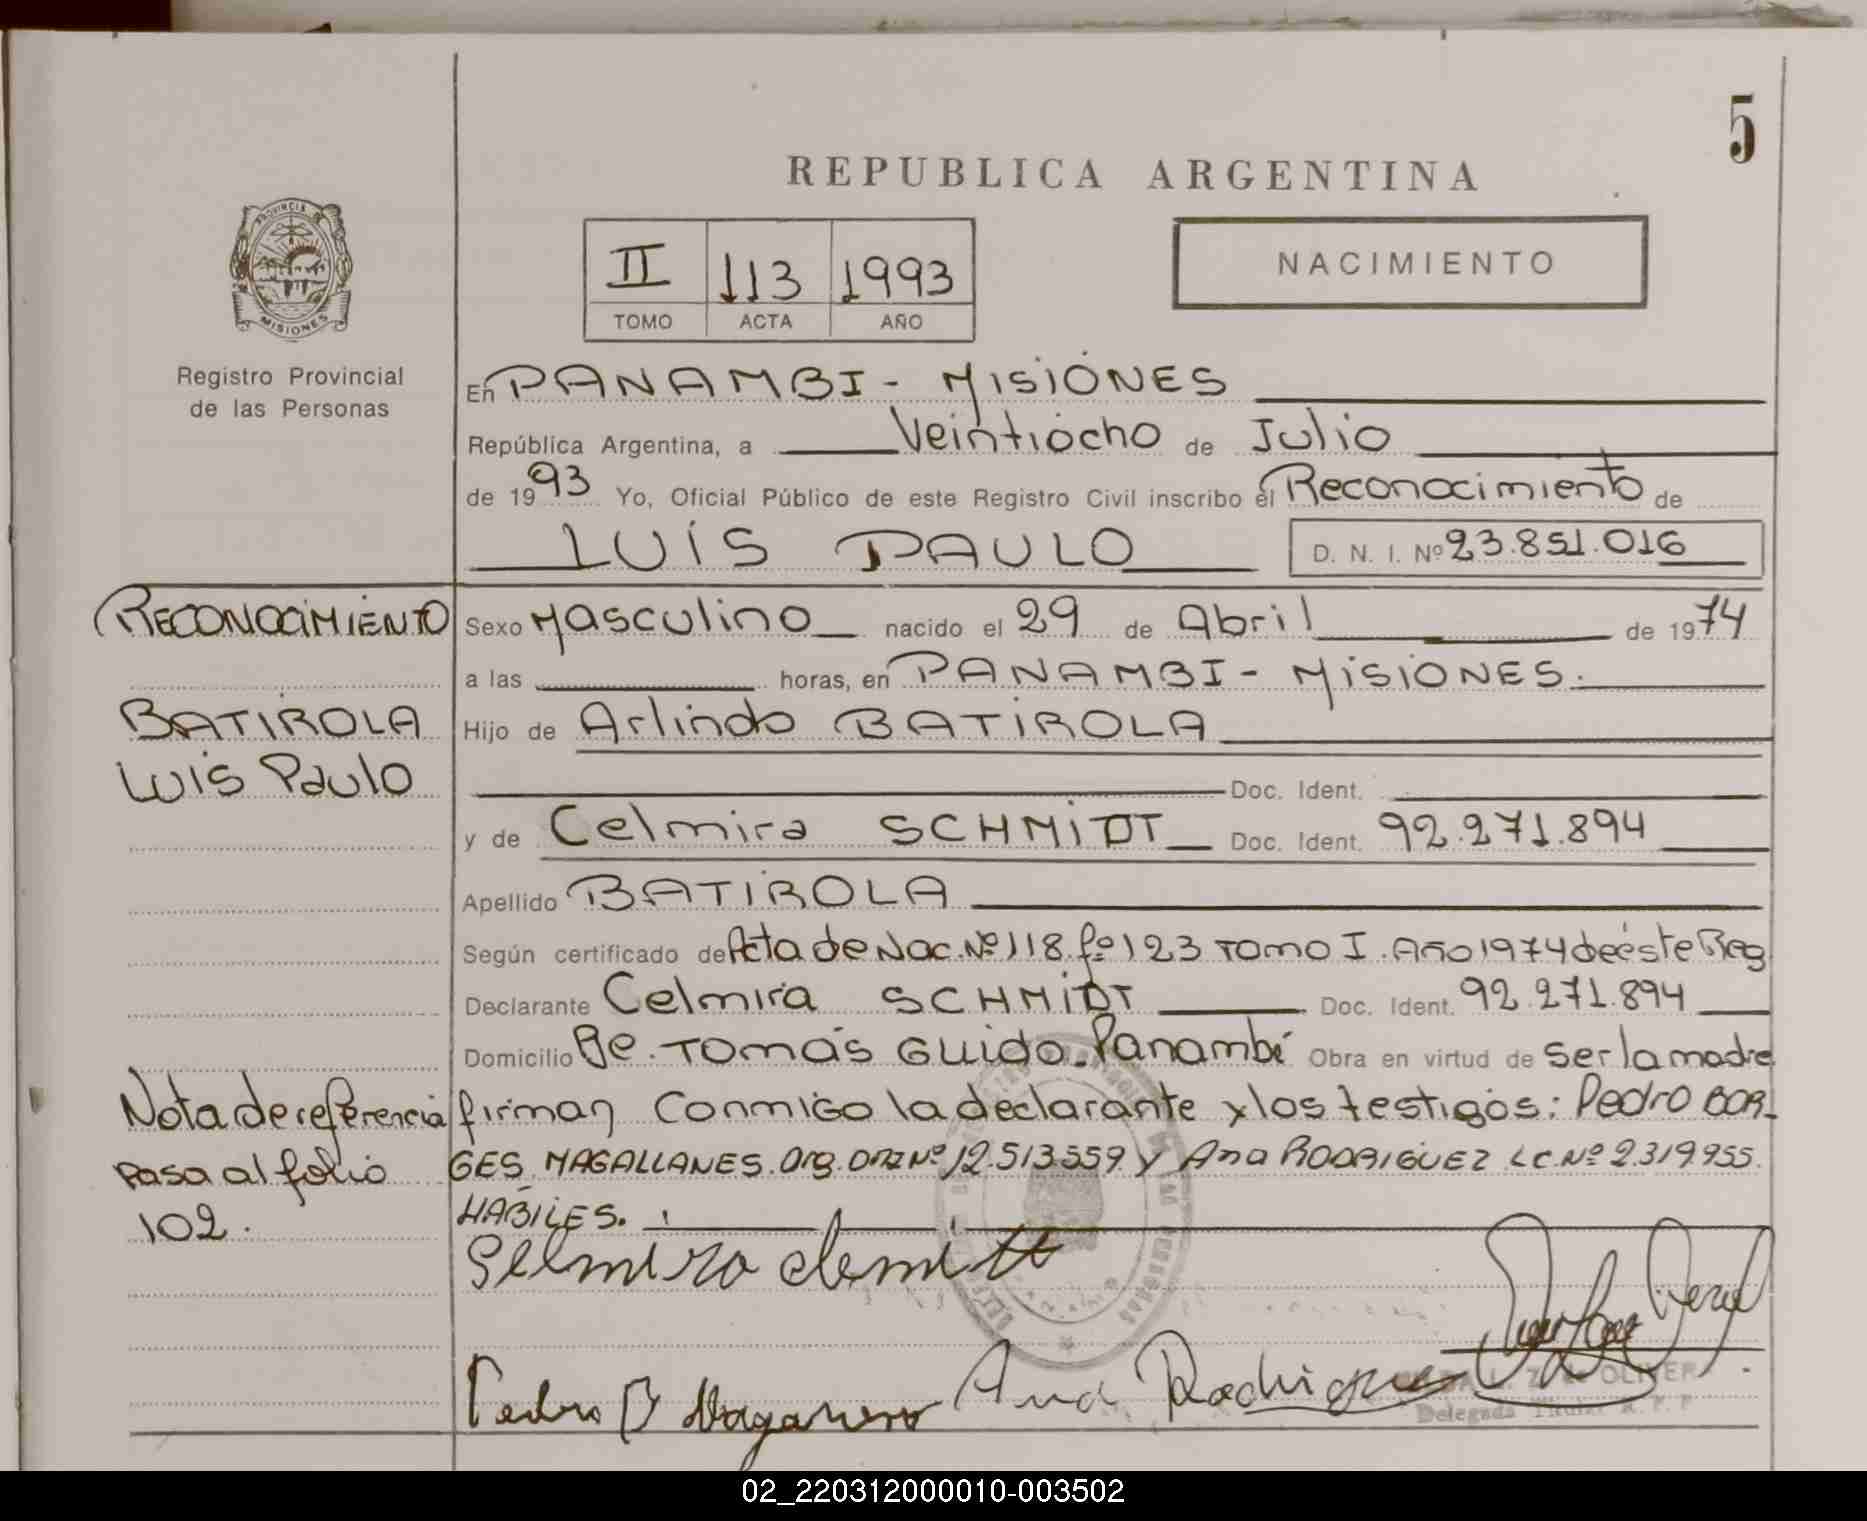 5
REPUBLICA ARGENTINA
PROVINCIA DE
MISIONES
Registro Provincial
de las Personas
II 113 1993
TOMO ACTA AÑO
NACIMIENTO
En PANAMBI - MISIONES
República Argentina, a Veintiocho de Julio
de 1993 Yo, Oficial Público de este Registro Civil inscribo el Reconocimiento de
LUIS PAULO D. N. I. Nº 23.851.016
RECONOCIMIENTO
BATIROLA
Luis Paulo
Sexo Masculino nacido el 29 de Abril de 1974
a las horas, en PANAMBI - MISIONES.
Hijo de Arlindo BATIROLA
Doc. Ident.
y de Celmira SCHMIDT Doc. Ident. 92.271.894
Apellido BATIROLA
Según certificado de Acta de Nac. Nº 118 fº 123 Tomo I. Año 1974 de éste Reg
Declarante Celmira SCHMIDT Doc. Ident. 92.271.894
Domicilio Tomás Guido - Panambí Obra en virtud de ser la madre
Nota de referencia
pasa al folio
102.
firman conmigo la declarante y los testigos: Pedro BOR-
GES MAGALLANES. Arg. DNI Nº 12.513.559 y Ana RODRIGUEZ LC. Nº 2.319.955.
HABILES.
Pedro B Ana Rodriguez
Z. de OLIVER
Delegada Titular R. P. P
02_220312000010-003502